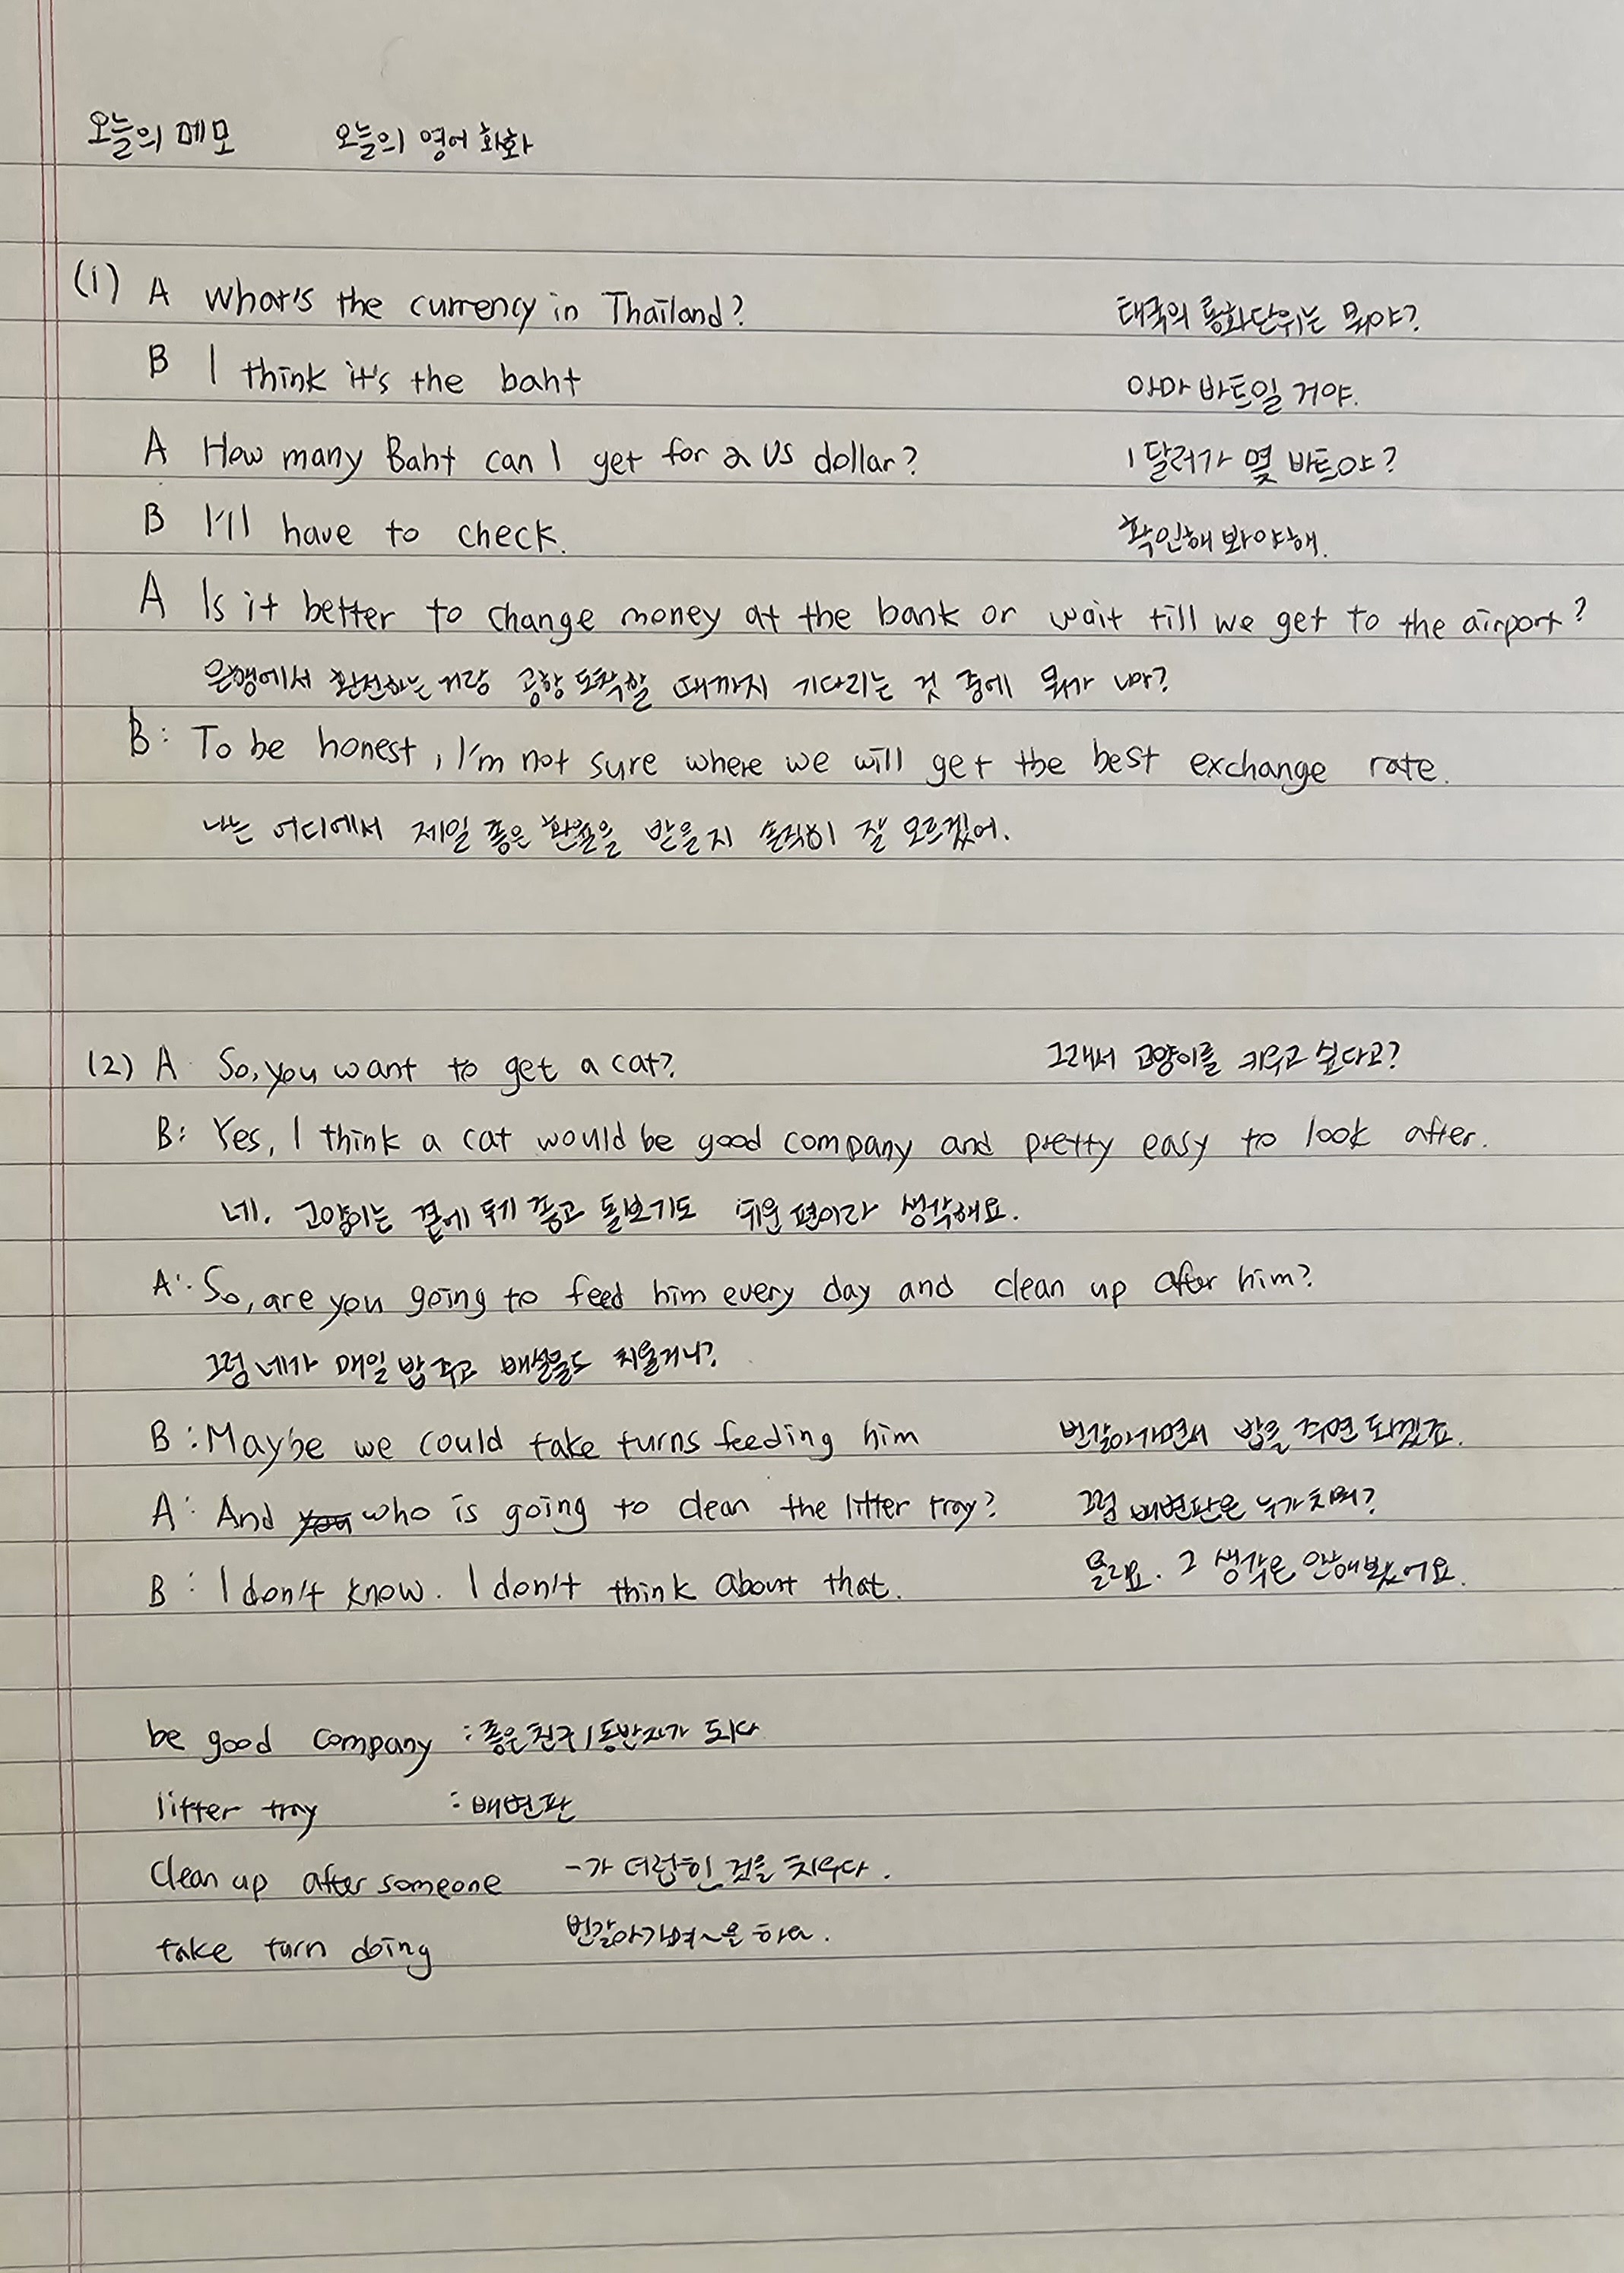 오늘의 메모 오늘의 영어 회화
(1) A What's the currency in Thailand? 태국의 통화단위는 뭐야?
B I think it's the baht 아마 바트일 거야.
A How many Baht can I get for a US dollar? 1달러가 몇 바트야?
B I'll have to check. 확인해 봐야해.
A Is it better to change money at the bank or wait till we get to the airport?
은행에서 환전하는 거랑 공항 도착할 때까지 기다리는 것 중에 뭐가 나아?
B: To be honest, I'm not sure where we will get the best exchange rate.
나는 어디에서 제일 좋은 환율을 받을지 솔직히 잘 모르겠어.
(2) A So, you want to get a cat? 그래서 고양이를 키우고 싶다고?
B: Yes, I think a cat would be good company and pretty easy to look after.
네. 고양이는 곁에 두기 좋고 돌보기도 쉬운 편이라 생각해요.
A: So, are you going to feed him every day and clean up after him?
그럼 네가 매일 밥 주고 배설물도 치울거니?
B: Maybe we could take turns feeding him 번갈아가면서 밥을 주면 되겠죠.
A: And you who is going to clean the litter tray? 그럼 배변판은 누가 치워?
B: I don't know. I don't think about that. 몰라요. 그 생각은 안해봤어요.
be good company : 좋은 친구/동반자가 되다
litter tray : 배변판
Clean up after someone -가 더럽힌 것을 치우다.
take turn doing 번갈아가며 ~을 하다.